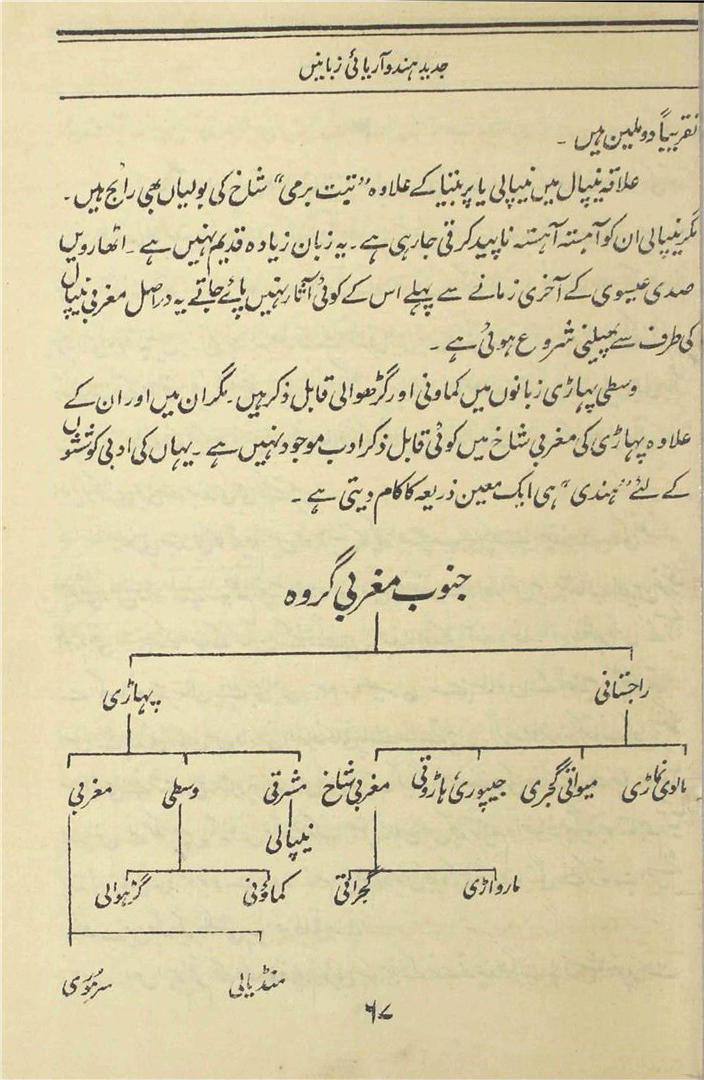 جدید ہندوآریائی زبانیں
تقریباً دو ملین ہیں ۔
علاقہ نیپال میں نیپالی یا پربتیا کے علاوہ "تبت برمی" شاخ کی بولیاں بھی رائج ہیں ۔
مگر نیپالی ان کو آہستہ آہستہ ناپید کرتی جارہی ہے ۔ یہ زبان زیادہ قدیم نہیں ہے ۔ اٹھارویں
صدی عیسوی کے آخری زمانے سے پہلے اس کے کوئی آثار نہیں پائے جاتے یہ دراصل مغربی نیپال
کی طرف سے پھیلنی شروع ہوئی ہے ۔
وسطی پہاڑی زبانوں میں کماونی اور گڑھوالی قابل ذکر ہیں ۔ مگر ان میں اور ان کے
علاوہ پہاڑی کی مغربی شاخ میں کوئی قابل ذکر ادب موجود نہیں ہے ۔ یہاں کی ادبی کوششوں
کے لئے "ہندی" ہی ایک معین ذریعہ کا کام دیتی ہے ۔
جنوب مغربی گروہ
راجستانی پہاڑی
مالوی نماڑی میواتی گجری جیپوری ہاڑوتی مغربی شاخ مشرقی وسطی مغربی
نیپالی
مارواڑی گجراتی کماؤنی گڑہوالی
منڈیالی سرموری
۶۷